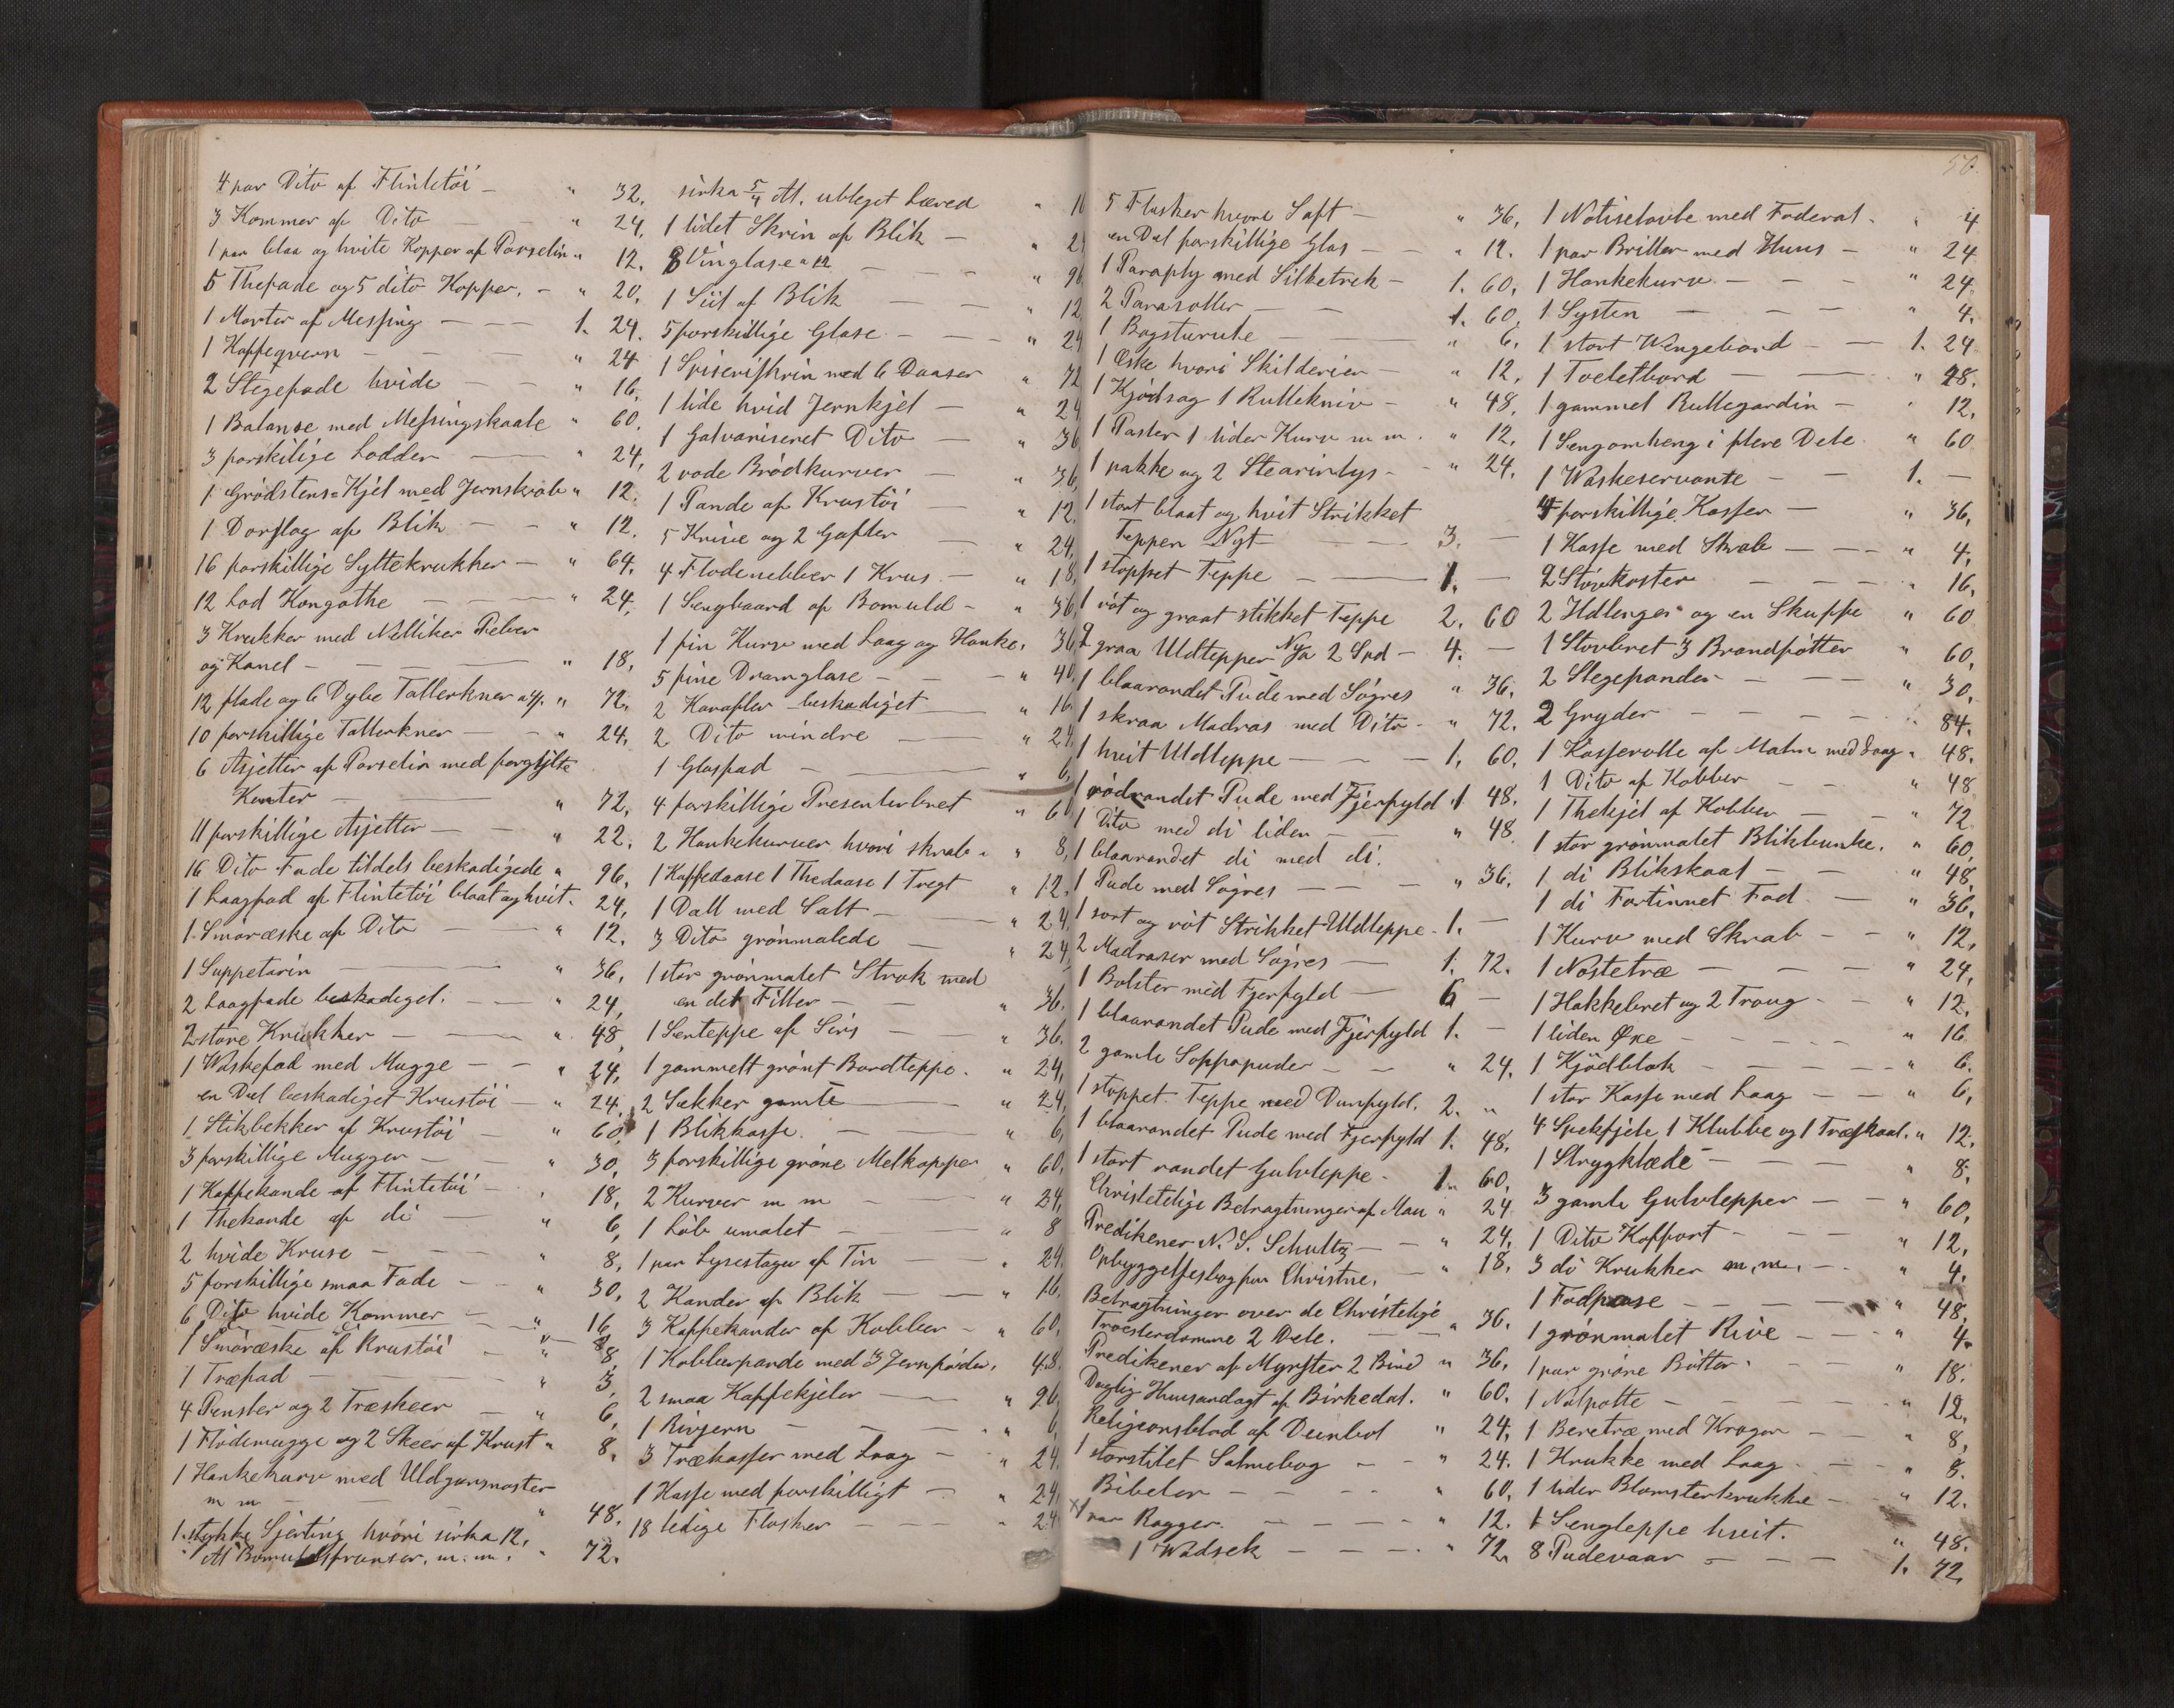 4 par Dito af Flintetöi — " 32.
3 Kommer af Dito — " 24.
1 par blaa og hvite Kopper af Porselin " 12.
5 Thefade og 5 dito Kopper. — " 20.
1 Morter af Messing — — 1. 24.
1 Kaffeqvern — " 24
2 Stegefade hvide — " 16.
1 Balanse med Messingskaale " 60.
3 forskilige Lodder — " 24,
1 Grödstens=Kjel med Jernskrab " 12.
1 Dorslag af Blik — " 12.
16 forskillige Syltekrukker — " 64.
12 Lod Kongothe — " 24,
3 Krukker med Nelliker Peber
og Kanel — " 18,
12 flade og 6 Dybe Tallerkner a 4 s. " 72.
10 forskillige Tallerkner — " 24.
6 Asjetter af Porselin med forgyldte
Kanter — " 72,
11 forskillige Asjetter — " 22.
16 Dito Fade tildels beskadigede " 96.
1 Laagfad af Flintetöi blaat og hvit. 24,
1 Smöræske af Dito — " 12.
1 Suppetarin — " 36,
2 Laagfade beskadiget. — " 24,
2 store Krukker — " 48
1 Waskefad med Mugge — " 24,
en Del beskadiget Krustöi — " 24.
1 Stikbekken af Krustöi — " 60
3 forskillige Mugger — " 30,
1 Kaffekande af Flintetöi — " 18,
1 Thekande af di — " 6,
2 hvide Kruse — " 8,
5 forskillige smaa Fade — " 30,
6 Dito hvide Kommer — " 16
1 Smöræske af Krustöi — " 8,
1 Træfad — " 3,
4 Pensler og 2 Træskeer — " 6,
1 Flödemugge og 2 Skeer af Krust " 8.
1 Hankekurv med Uldgarnsnöster
m m — " 48.
1. stykke Sjerting hvori sirka 12,
Al Bomuldsfrunser. m. m. " 72.
sirka 5/4 Al. ubleget Lærred " 16
1 lidet Skrin af Blik — " 24
8 Vinglase a 12 — " 96
1 Siil af Blik — " 12
5 forskillige Glase — " 24
1 Spiseriskrin med 6 Daaser " 72
1 lide hvid Jernkjel — " 24
1 Galvaniseret Dito — " 36
2 rode Brödkurver — " 36,
1 Pande af Krustöi — " 12.
5 Knive og 2 Gafler — " 24,
4 Flodenebber 1 Krus. — " 18,
1 Sengbaand af Bomuld — " 36,
1 fin Kurv med Laag og Hanke. 36,
5 fine Dramglase — " 40,
2 Karafler beskadiget — " 16.
2 Dito mindre — " 24.
1 Glasfad — " 6,
4 forskillige Presenterbret " 60
2 Hankekurver hvori skrab " " 8,
1 Kaffedaase 1 Thedaase 1 Tregt " 12.
1 Dall med Salt — " 24.
3 Dito grönmalede — " 24,
1 stor grönmalet Strok med
en del Filler — " 36.
1 Senteppe af Sirs — " 36.
1 gammelt grönt Bordteppe. " 24,
2 Sekker gamle — " 24,
1 Blikkasse. — " 6,
3 forskillige gröne Melkopper " 60,
2 Kurver m m — " 24,
1 Löb umalet — " 8
1 par Lysestager af Tin — " 24.
2 Kander af Blik — " 16.
3 Kaffekander af Kobber — " 60,
1 Kobberpande med 3 Jernföder. 48.
2 smaa Kaffekjeler — " 96
1 Rivjern — " 6,
3 Trækasser med Laag — " 24.
1 Kasse med forskilligt — " 24.
18 ledige Flasker — " 24.
50.
5 Flasker hvori Saft — " 36,
en Del forskillige Glas — " 12.
1 Paraply med Silketrek — 1. 60,
2 Parasoller — 1. 60,
1 Bagsturute — " 6,
1 Eske hvori Skilderier — " 12,
1 Kjödsag 1 Rullekniv — " 48,
1 Paster 1 liden Kurv m m. " 12,
1 pakke og 2 Stearinlys — " 24.
1 stort blaat og hvit Strikket
Teppen Nyt — 3. —
1 stoppet Teppe — 1. —
1 röt og graat stikket Teppe 2. 60
2 graa Uldtepper Nye 2 Spd — 4. —
1 blaarandet Pude med Sögres " 36.
1 skraa Madras med Dito " 72.
1 hvit Uldteppe — 1, 60,
1 rödrandet Pude med Fjerfyld 1 48.
1 Dito med di liden — " 48
1 blaarandet di med di.
1 Pude med Sögres — " 36.
1 sort og röt Strikket Uldteppe 1. —
2 Madraser med Sögres — 1. 72.
1 Bolster med Fjerfyld — 6 —
1 blaarandet Pude med Fjerfyld 1. —
2 gamle Soffapuder — " 24.
1 stoppet Teppe med Dunfyld. 2. "
1 blaarandet Pude med Fjerfyld 1. 48.
1 stort randet Gulvteppe. 1. 60,
Christetelige Betragtninger af Mau " 24
Predikener N. S. Schultz — " 24,
Opbyggelsesbog for Christne. — " 18,
Betragtninger over de Christelige
Troeslerdomme 2 Dele. — " 36.
Predikener af Mynster 2 Bind " 36,
Daglig Huusandagt af Birkedal. " 60.
Religeonsblad af Deinbol " 24,
1 storstilet Salmebog — " 24.
Bibelen — " 60,
1 par Ragger. — " 12.
1 Wadsek — " 72.
1 Notisetavle med Foderal. " 4
1 par Briller med Huus — " 24
1 Hankekurv — " 24
1 Systen — " 4.
1 stort Wengebord — 1. 24
1 Toeletbord — " 48.
1 gammel Rullegardin — " 12,
1 Sengomheng i flere Dele. " 60
1 Waskeservante — 1. —
4 forskillige Kasser — " 36,
1 Kasse med Skrab — " 4.
2 Stövekoster — " 16,
2 Hdlenger og en Skuppe " 60
1 Stovbret 3 Brandfötter " 60,
2 Stegepander — " 30,
2 Gryder — " 84.
1 Kasserolle af Malm med Laag " 48.
1 Dito af Kobber — " 48
1 Thekjel af Kobber — " 72
1 stor grönmalet Blikbunke. " 60,
1 di Blikskaal — " 48,
1 di Fortinnet Fad — " 36,
1 Kurv med Skrab — " 12,
1 Nostetræ — " 24,
1 Hakkebret og 2 Traug — " 12,
1 liden Øxe — " 16
1 Kjödblok — " 6.
1 stor Kasse med Laag — " 6,
4 Spekfjele 1 Klubbe og 1 Træskaal. " 12.
1 Strygklæde — " 8.
3 gamle Gulvtepper — " 60,
1 Dito Koffort — " 12,
3 di Krukker m, m, — " 4.
1 Fodpose — " 48
1 grönmalet Rive — " 4.
1 par gröne Bötter — " 18.
1 Natpotte — " 12,
1 Beretræ med Kroger — " 8,
1 Krukke med Laag — " 8.
1 liden Blomsterkrukke — " 12.
1 Sengteppe hvit. " 48.
8 Pudevaar — 1. 72,